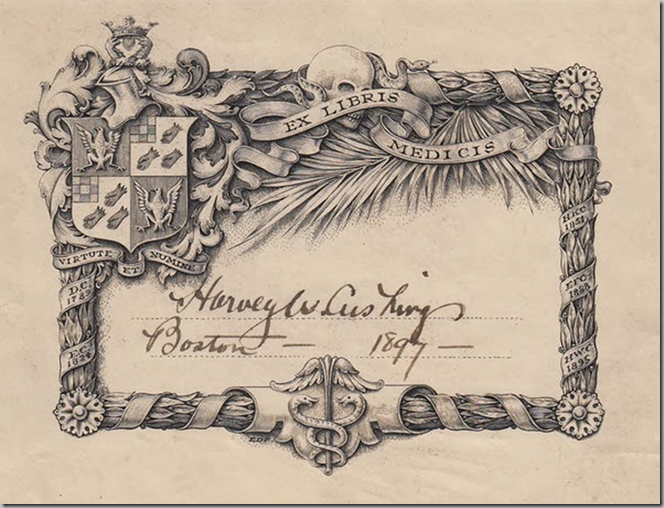 EX LIBRIS
MEDICIS
VIRTUTE ET NUMINE
D.C.
1783
E.C.
1824
H.K.C.
1851
E.F.C.
1888
H.W.C.
1895
Harvey W Cushing
Boston — 1897 —